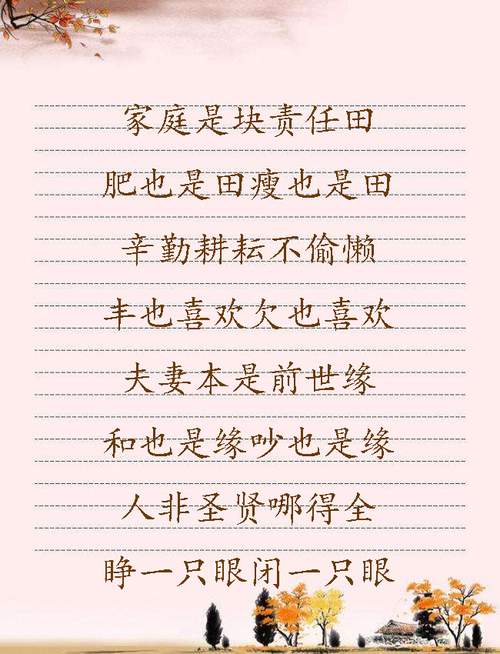 家庭是块责任田
肥也是田瘦也是田
辛勤耕耘不偷懒
丰也喜欢欠也喜欢
夫妻本是前世缘
和也是缘吵也是缘
人非圣贤哪得全
睁一只眼闭一只眼